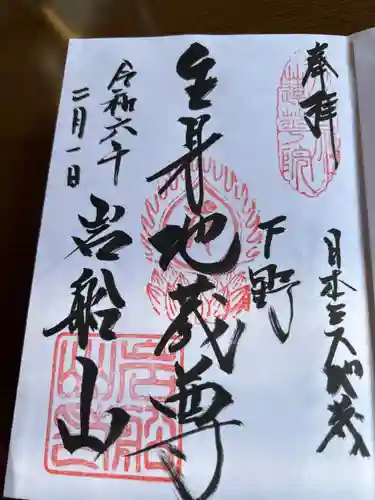 奉拝
日本三大地蔵
下野
生身地蔵尊
岩船山
令和六年
二月一日
蓮華院